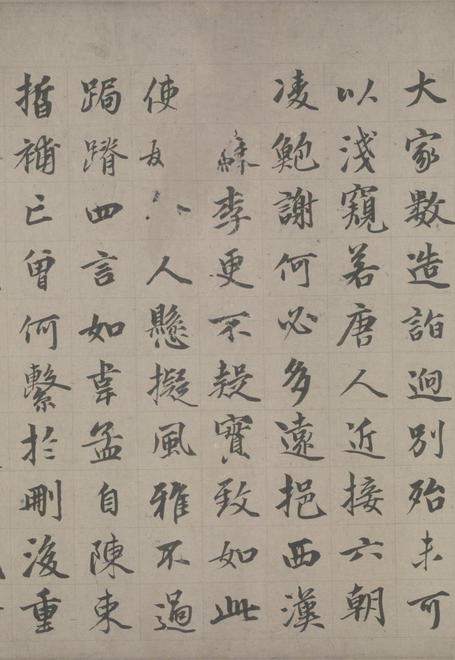 大家數造詣迥別殆未可
以淺窺若唐人近接六朝
凌鮑謝何必多遠挹西漢
李更不疑寶致如此
使人懸擬風雅不過
跼蹐四言如韋孟自陳束
晳補亡曾何繫於刪後重